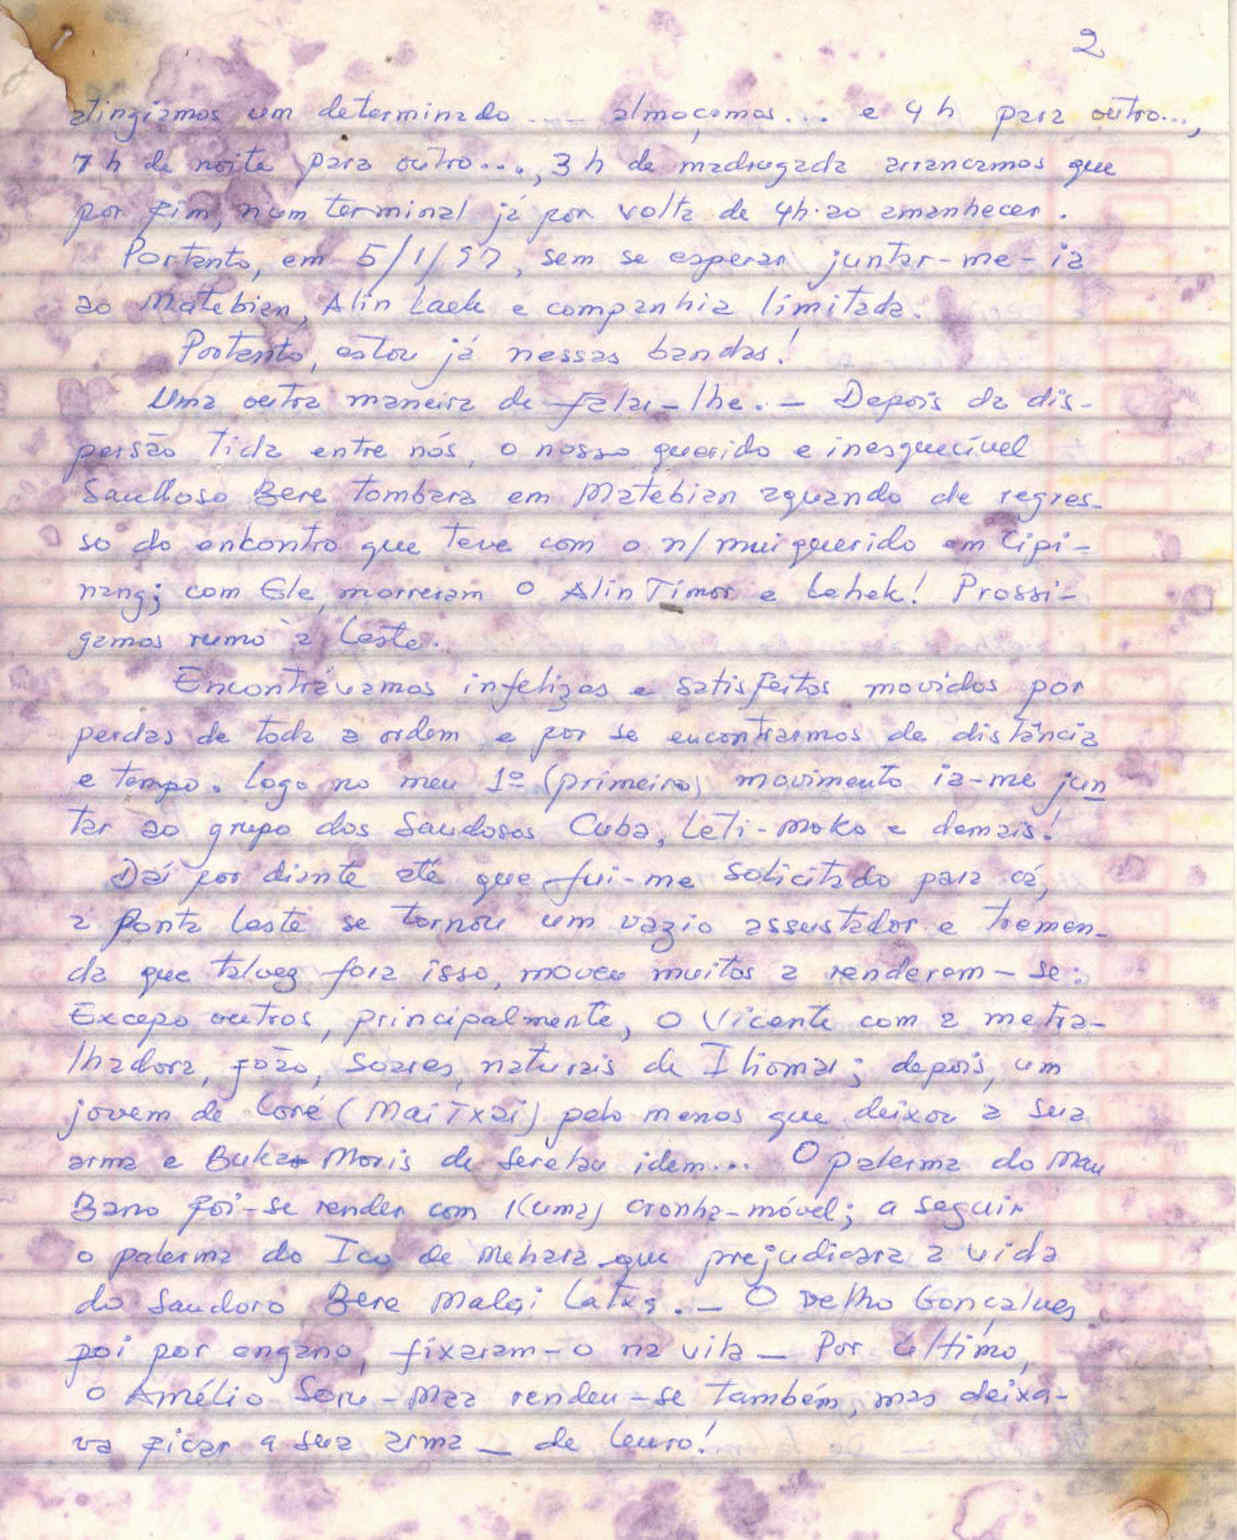 2
atingíamos um determinado ... almoçamos... e 4 h para outro...,
7 h de noite para outro..., 3 h de madrugada arrancamos que
por fim, num terminal já por volta de 4h. ao amanhecer.
Portanto, em 5/1/97, sem se esperar juntar-me-ia
ao Matebian, Alin Laek e companhia limitada.
Portanto, estou já nessas bandas!
Uma outra maneira de falar-lhe. — Depois da dis-
persão tida entre nós, o nosso querido e inesquecível
Saudoso Bere tombara em Matebian aquando de regres-
so do encontro que teve com o n/ mui querido em Cipi-
nang; com Ele, morreram o Alin Timor e Lehek! Prossi-
gamos rumo à Leste.
Encontrávamos infelizes e satisfeitos movidos por
perdas de toda a ordem e por se encontrarmos de distância
e tempo. Logo no meu 1º (primeiro) movimento ia-me jun
tar ao grupo dos Saudosos Cuba, Leti-Moko e demais!
Daí por diante até que fui-me solicitado para cá,
a Ponta Leste se tornou um vazio assustador e tremen-
da que talvez fora isso, moveu muitos a renderem-se:
Excepo outros, principalmente, o Vicente com a metra-
lhadora, João, Soares, naturais de Iliomar; depois, um
jovem de Loré (Mai Txai) pelo menos que deixou a sua
arma e Buka Moris de Serelau idem... O palerma do Mau
Bano foi-se render com 1(uma) cronha-móvel; a seguir
o palerma do Ico de Mehara que prejudicara a vida
do Saudoso Bere Malai Latxa. — O Delho Gonçalves
foi por engano, fixaram-o na vila — Por último,
o Amélio Soru-Maa rendeu-se também, mas deixa-
va ficar a sua arma — de Leuro!